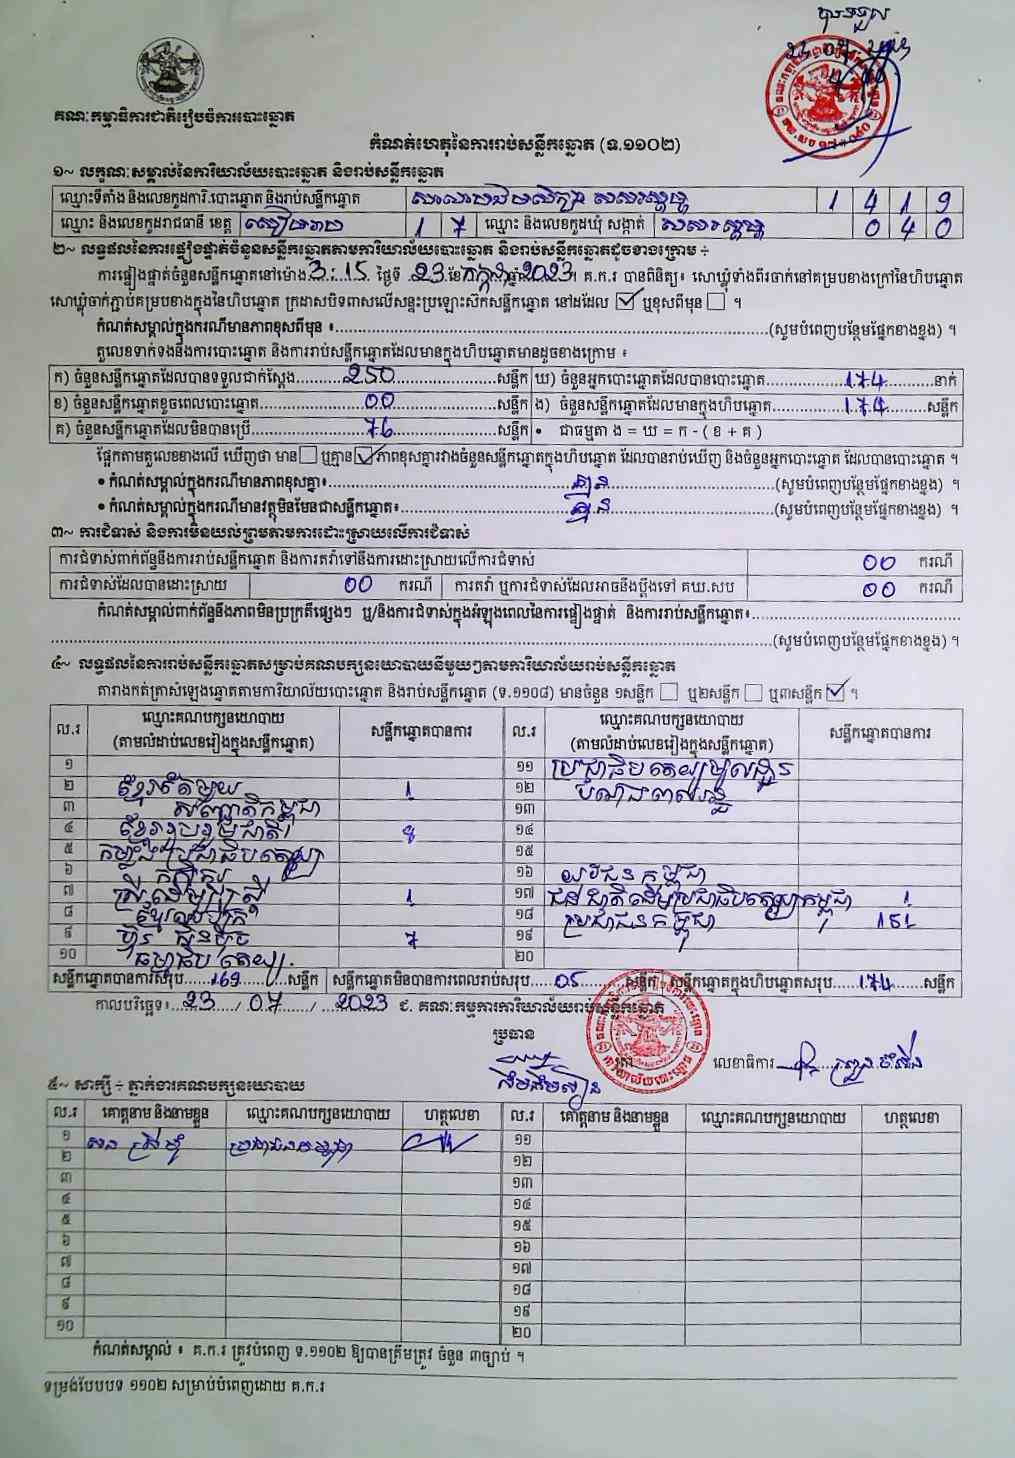 បានទទួល
23 07 2023
គណៈកម្មាធិការជាតិរៀបចំការបោះឆ្នោត
កំណត់ហេតុនៃការរាប់សន្លឹកឆ្នោត (ទ.១១០២)
១~ លក្ខណៈសម្គាល់នៃការិយាល័យបោះឆ្នោត និងរាប់សន្លឹកឆ្នោត
ឈ្មោះទីតាំង និងលេខកូដការិ.បោះឆ្នោត និងរាប់សន្លឹកឆ្នោត 1 4 1 9
ឈ្មោះ និងលេខកូដរាជធានី ខេត្ត សៀមរាប 1 7 ឈ្មោះ និងលេខកូដឃុំ សង្កាត់ សសរស្តម្ភ 0 4 0
២~ លទ្ធផលនៃការផ្ទៀងផ្ទាត់ចំនួនសន្លឹកឆ្នោតតាមការិយាល័យបោះឆ្នោត និងរាប់សន្លឹកឆ្នោតដូចខាងក្រោម ÷
ការផ្ទៀងផ្ទាត់ចំនួនសន្លឹកឆ្នោតនៅម៉ោង 3 : 15 ថ្ងៃទី 23 ខែ កក្កដា ឆ្នាំ 2023 ។ គ.ក.រ បានពិនិត្យ៖ សោឃ្លុំទាំងពីរចាក់នៅគម្របខាងក្រៅនៃហិបឆ្នោត
សោឃ្លុំចាក់ភ្ជាប់គម្របខាងក្នុងនៃហិបឆ្នោត ក្រដាសបិទពាសលើសន្ទះប្រឡោះសឹកសន្លឹកឆ្នោត នៅដដែល ☑ ឬខុសពីមុន ☐ ។
កំណត់សម្គាល់ក្នុងករណីមានភាពខុសពីមុន ៖...(សូមបំពេញបន្ថែមផ្នែកខាងខ្នង) ។
តួលេខទាក់ទងនឹងការបោះឆ្នោត និងការរាប់សន្លឹកឆ្នោតដែលមានក្នុងហិបឆ្នោតមានដូចខាងក្រោម ៖
ក) ចំនួនសន្លឹកឆ្នោតដែលបានទទួលជាក់ស្តែង...250...សន្លឹក ឃ) ចំនួនអ្នកបោះឆ្នោតដែលបានបោះឆ្នោត...174...នាក់
ខ) ចំនួនសន្លឹកឆ្នោតខូចពេលបោះឆ្នោត...00...សន្លឹក ង) ចំនួនសន្លឹកឆ្នោតដែលមានក្នុងហិបឆ្នោត...174...សន្លឹក
គ) ចំនួនសន្លឹកឆ្នោតដែលមិនបានប្រើ...76...សន្លឹក • ជាធម្មតា ង = ឃ = ក - ( ខ + គ )
ផ្អែកតាមតួលេខខាងលើ ឃើញថា មាន ☐ ឬគ្មាន ☑ ភាពខុសគ្នារវាងចំនួនសន្លឹកឆ្នោតក្នុងហិបឆ្នោត ដែលបានរាប់ឃើញ និងចំនួនអ្នកបោះឆ្នោត ដែលបានបោះឆ្នោត ។
• កំណត់សម្គាល់ក្នុងករណីមានភាពខុសគ្នា៖...គ្មាន...(សូមបំពេញបន្ថែមផ្នែកខាងខ្នង) ។
• កំណត់សម្គាល់ក្នុងករណីមានវត្ថុមិនមែនជាសន្លឹកឆ្នោត៖...គ្មាន...(សូមបំពេញបន្ថែមផ្នែកខាងខ្នង) ។
៣~ ការជំទាស់ និងការមិនយល់ព្រមតាមការដោះស្រាយលើការជំទាស់
ការជំទាស់ពាក់ព័ន្ធនឹងការរាប់សន្លឹកឆ្នោត និងការតវ៉ាទៅនឹងការដោះស្រាយលើការជំទាស់ 00 ករណី
ការជំទាស់ដែលបានដោះស្រាយ 00 ករណី ការតវ៉ា ឬការជំទាស់ដែលអាចនឹងប្តឹងទៅ គឃ.សប 00 ករណី
កំណត់សម្គាល់ពាក់ព័ន្ធនឹងភាពមិនប្រក្រតីផ្សេងៗ ឬ/និងការជំទាស់ក្នុងអំឡុងពេលនៃការផ្ទៀងផ្ទាត់ និងការរាប់សន្លឹកឆ្នោត៖...
...(សូមបំពេញបន្ថែមផ្នែកខាងខ្នង) ។
៤~ លទ្ធផលនៃការរាប់សន្លឹកឆ្នោតសម្រាប់គណបក្សនយោបាយនីមួយៗតាមការិយាល័យរាប់សន្លឹកឆ្នោត
តារាងកត់ត្រាសំឡេងឆ្នោតតាមការិយាល័យបោះឆ្នោត និងរាប់សន្លឹកឆ្នោត (ទ.១១០៨) មានចំនួន ១សន្លឹក ☐ ឬ២សន្លឹក ☐ ឬ៣សន្លឹក ☑ ។
ល.រ ឈ្មោះគណបក្សនយោបាយ សន្លឹកឆ្នោតបានការ ល.រ ឈ្មោះគណបក្សនយោបាយ សន្លឹកឆ្នោតបានការ
(តាមលំដាប់លេខរៀងក្នុងសន្លឹកឆ្នោត) (តាមលំដាប់លេខរៀងក្នុងសន្លឹកឆ្នោត)
១ ១១ ប្រជាធិបតេយ្យមូលដ្ឋាន
២ ខ្មែរតែមួយ 1 ១២
៣ សញ្ជាតិកម្ពុជា ១៣
៤ ខ្មែររួបរួមជាតិ ១៤
៥ កម្លាំងប្រជាធិបតេយ្យ ១៥
៦ កសិករ ១៦ យុវជនកម្ពុជា
៧ ស្ត្រីដើម្បីស្ត្រី 1 ១៧ ជនជាតិដើមប្រជាធិបតេយ្យកម្ពុជា 1
៨ ១៨ ប្រជាជនកម្ពុជា 151
៩ ហ៊្វុនស៊ិនប៉ិច 7 ១៩
១០ ធម្មាធិបតេយ្យ ២០
សន្លឹកឆ្នោតបានការសរុប...169...សន្លឹក សន្លឹកឆ្នោតមិនបានការពេលរាប់សរុប...05...សន្លឹក សន្លឹកឆ្នោតក្នុងហិបឆ្នោតសរុប...174...សន្លឹក
កាលបរិច្ឆេទ៖ 23 / 07 / 2023 ជ. គណៈកម្មការការិយាល័យរាប់សន្លឹកឆ្នោត
ប្រធាន
លេខាធិការ
៥~ សាក្សី ÷ ភ្នាក់ងារគណបក្សនយោបាយ
ល.រ គោត្តនាម និងនាមខ្លួន ឈ្មោះគណបក្សនយោបាយ ហត្ថលេខា ល.រ គោត្តនាម និងនាមខ្លួន ឈ្មោះគណបក្សនយោបាយ ហត្ថលេខា
១ ប្រជាជនកម្ពុជា ១១
២ ១២
៣ ១៣
៤ ១៤
៥ ១៥
៦ ១៦
៧ ១៧
៨ ១៨
៩ ១៩
១០ ២០
កំណត់សម្គាល់ ៖ គ.ក.រ ត្រូវបំពេញ ទ.១១០២ ឱ្យបានត្រឹមត្រូវ ចំនួន ៣ច្បាប់ ។
ទម្រង់បែបបទ ១១០២ សម្រាប់បំពេញដោយ គ.ក.រ